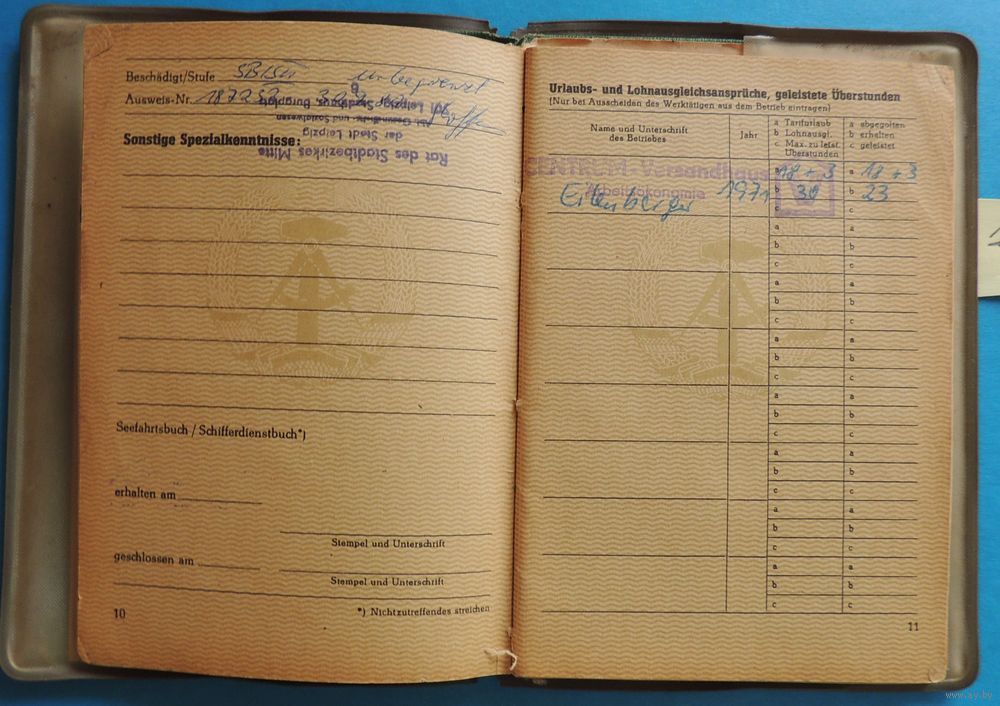 Beschädigt/Stufe SBISt unbegrenzt
Ausweis-Nr. 187252
Abt. Gesundheits- und Sozialwesen
der Stadt Leipzig
Rat des Stadtbezirkes Mitte
Sonstige Spezialkenntnisse:
Seefahrtsbuch / Schifferdienstbuch*)
erhalten am
Stempel und Unterschrift
geschlossen am
Stempel und Unterschrift
*) Nichtzutreffendes streichen
10
Urlaubs- und Lohnausgleichsansprüche, geleistete Überstunden
(Nur bei Ausscheiden des Werktätigen aus dem Betrieb eintragen)
Name und Unterschrift des Betriebes
Jahr
a Tarifurlaub
b Lohnausgl.
c Max. zu leist. Überstunden
a abgegolten
b erhalten
c geleistet
CENTRUM-Versandhaus
Arbeitsökonomie
1971
a 18 + 3 a 18 + 3
b 30 b 23
c c
a a
b b
c c
a a
b b
c c
a a
b b
c c
a a
b b
c c
a a
b b
c c
a a
b b
c c
a a
b b
c c
11
www.ay.by